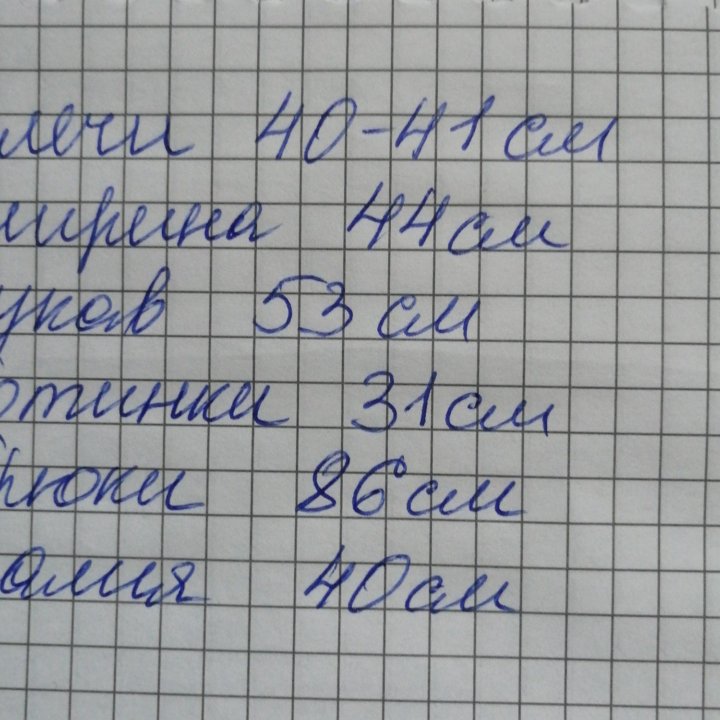 лечи 40-41 см
ирина 44 см
укав 53 см
отинки 31 см
рюки 86 см
алия 40 см